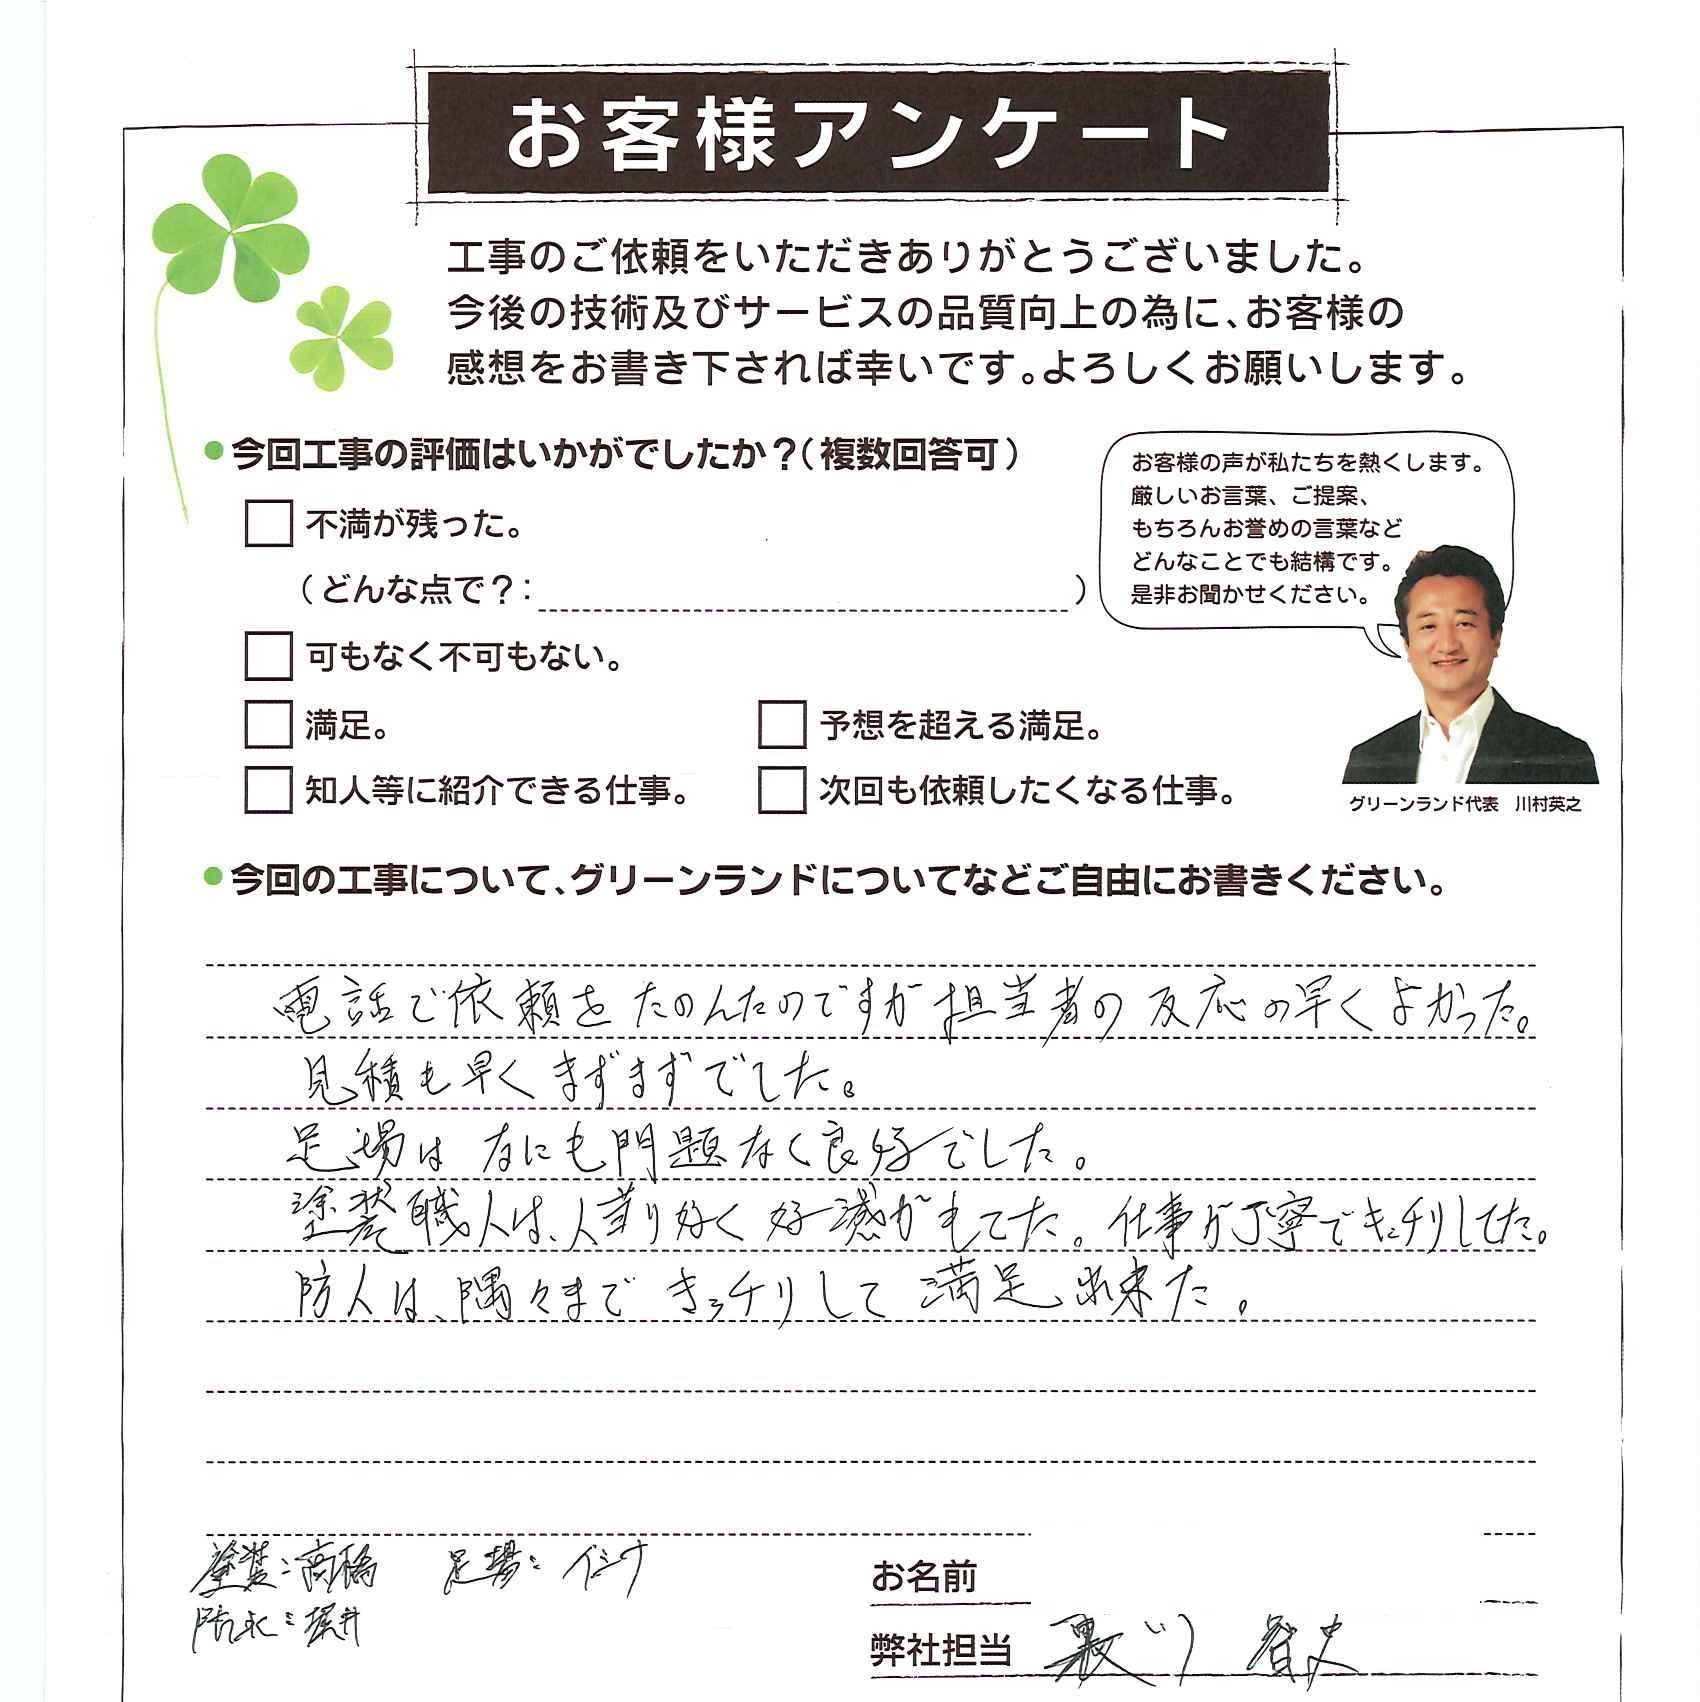 お客様アンケート
工事のご依頼をいただきありがとうございました。
今後の技術及びサービスの品質向上の為に、お客様の
感想をお書き下されば幸いです。よろしくお願いします。
●今回工事の評価はいかがでしたか？（複数回答可）
不満が残った。
（どんな点で？：　　　）
可もなく不可もない。
満足。　予想を超える満足。
知人等に紹介できる仕事。　次回も依頼したくなる仕事。
お客様の声が私たちを熱くします。
厳しいお言葉、ご提案、
もちろんお誉めの言葉など
どんなことでも結構です。
是非お聞かせください。
グリーンランド代表　川村英之
●今回の工事について、グリーンランドについてなどご自由にお書きください。
電話で依頼をたのんたのですが担当者の反応の早くよかった。
見積も早くまずまずでした。
足場はなにも問題なく良好でした。
塗装職人は、人当り好く好感がもてた。仕事が丁寧でキッチリしてた。
防人は、隅々まできっチリして満足出来た。
塗装：高橋　足場：イシナ
防水：堀井
お名前
弊社担当　智史